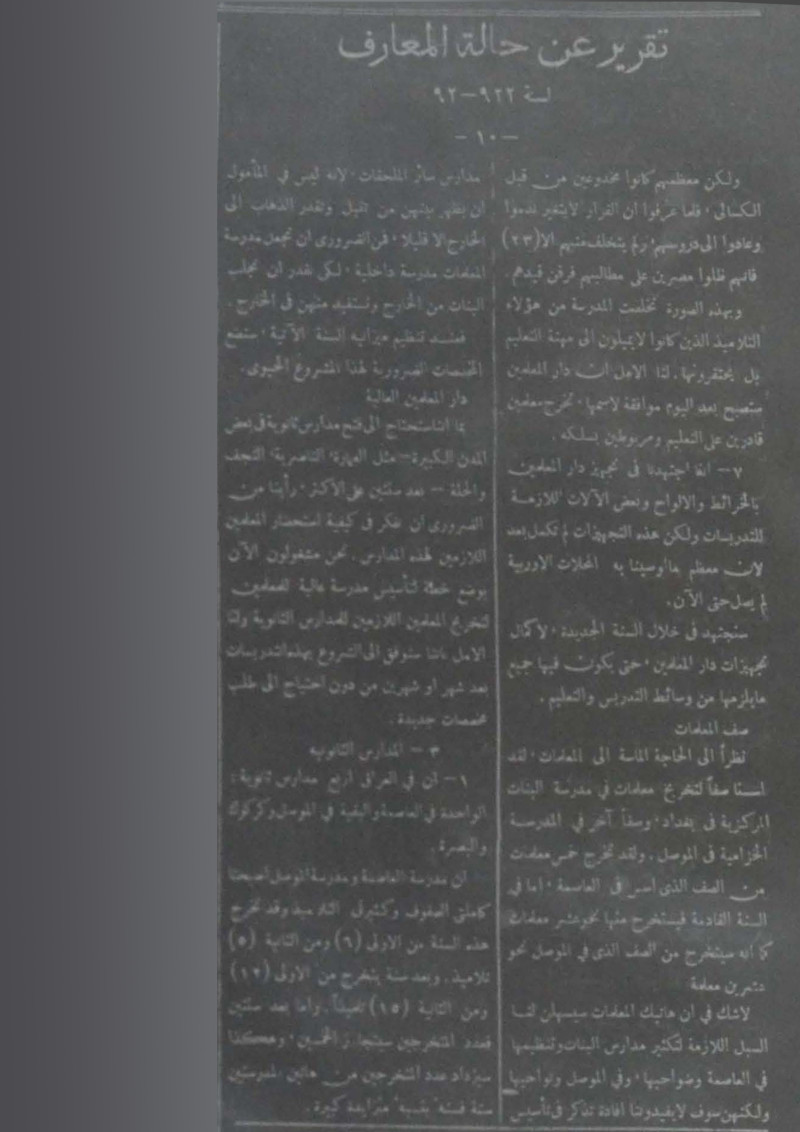 تقرير عن حالة المعارف
لسنة ٩٢٢-٩٢
- ١٠ -
ولكن معظمهم كانوا مخدوعين من قبل
الكسالى، فلما عرفوا ان القرار لايتغير ندموا
وعادوا الى دروسهم ولم يتخلف منهم الا (٢٣)
فانهم ظلوا مصرين على مطالبهم فرقن قيدهم.
وبهذه الصورة تخلصت المدرسة من هؤلاء
التلاميذ الذين كانوا لايميلون الى مهنة التعليم
بل يحتقرونها. لنا الامل ان دار المعلمين
ستصبح بعد اليوم موافقة لاسمها، تخرج معلمين
قادرين على التعليم ومربوطين بسلكه.
٧- اننا اجتهدنا فى تجهيز دار المعلمين
بالخرائط والالواح وبعض الآلات اللازمة
للتدريسات ولكن هذه التجهيزات لم تكمل بعد
لان معظم مااوصينا به المحلات الاوربية
لم يصل حتى الآن.
سنجتهد فى خلال السنة الجديدة، لاكمال
تجهيزات دار المعلمين، حتى يكون فيها جميع
مايلزمها من وسائط التدريس والتعليم.
صف المعلمات
نظراً الى الحاجة الماسة الى المعلمات، لقد
اسسنا صفاً لتخريج معلمات في مدرسة البنات
المركزية فى بغداد، وصفاً آخر في المدرسة
الخزامية فى الموصل. ولقد تخرج خمس معلمات
من الصف الذى اسس فى العاصمة، اما فى
السنة القادمة فيستخرج منها نحو عشر معلمات
كما أنه سيتخرج من الصف الذى فى الموصل نحو
عشرين معلمة
لاشك في ان هاتيك المعلمات سيسهلن لنا
السبل اللازمة لتكثير مدارس البنات وتنظيمها
في العاصمة وضواحيها، وفي الموصل ونواحيها
ولكنهن سوف لايفيدوننا افادة تذكر فى تأسيس
مدارس سائر الملحقات، لانه ليس في المأمول
ان يظهر بينهن من تقبل وتقدر الذهاب الى
الخارج الا قليلا، فمن الضرورى ان نجعل مدرسة
المعلمات مدرسة داخلية، لكى نقدر ان نجلب
البنات من الخارج ونستفيد منهن فى الخارج.
فعند تنظيم ميزانية السنة الآتية، سنضع
المخصصات الضرورية لهذا المشروع الحيوى.
دار المعلمين العالية
بما اننا سنحتاج الى فتح مدارس ثانوية فى بعض
المدن الكبيرة - مثل العمارة، الناصرية، النجف
والحلة - بعد سنتين على الأكثر، رأينا من
الضرورى ان نفكر فى كيفية استحضار المعلمين
اللازمين لهذه المدارس. نحن مشغولون الآن
بوضع خطة لتأسيس مدرسة عالية للمعلمين
لتخريج المعلمين اللازمين للمدارس الثانوية ولنا
الامل باننا سنوفق الى الشروع بهذه التدريسات
بعد شهر او شهرين من دون احتياج الى طلب
مخصصات جديدة.
٣- المدارس الثانويه
١- ان في العراق اربع مدارس ثانوية:
الواحدة فى العاصمة والبقية فى الموصل وكركوك
والبصرة.
ان مدرسة العاصمة ومدرسة الموصل اصبحتا
كاملتى الصفوف وكثيرتى التلاميذ وقد تخرج
هذه السنة من الاولى (٦) ومن الثانية (٥)
تلاميذ. وبعد سنة يتخرج من الاولى (١٢)
ومن الثانية (١٥) تلميذاً. واما بعد سنتين
فعدد المتخرجين سيتجاوز الخمسين، وهكذا
سيزداد عدد المتخرجين من هاتين المدرستين
سنة فسنة بنسبة متزايدة كبيرة.